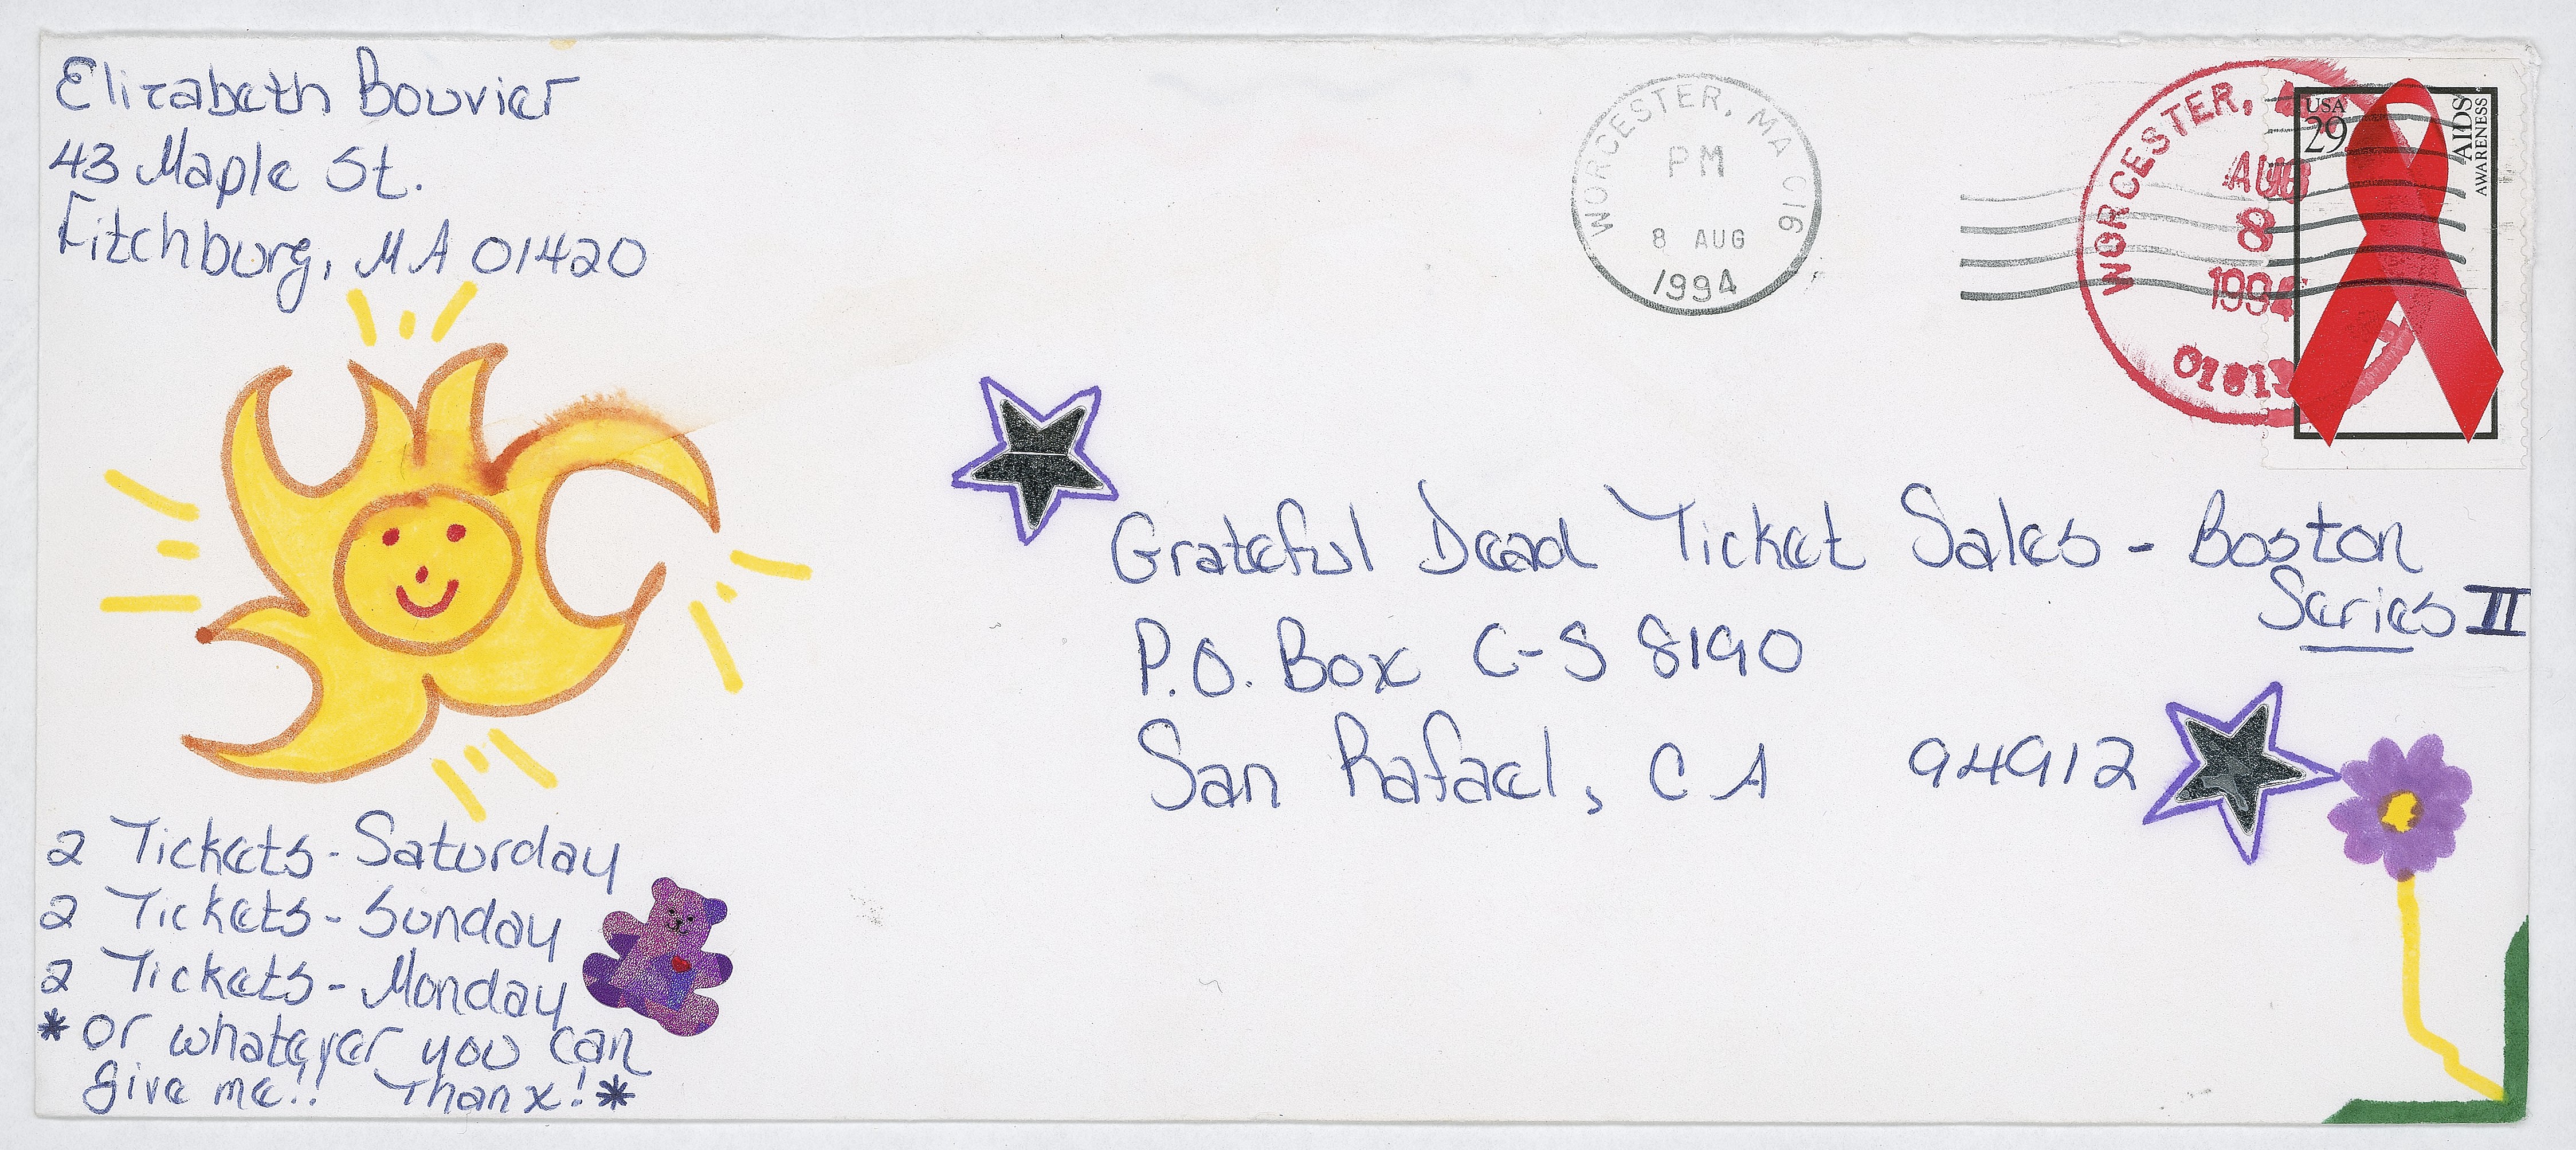 Elizabeth Bouvier
43 Maple St.
Fitchburg, MA 01420
WORCESTER, MA 016
PM
8 AUG
1994
WORCESTER,
AUG
8
1994
USA
29
AIDS
AWARENESS
Grateful Dead Ticket Sales - Boston
Series II
P.O. Box C-S 8190
San Rafael, CA 94912
2 Tickets - Saturday
2 Tickets - Sunday
2 Tickets - Monday
* or whatever you can
give me!! Thanx! *